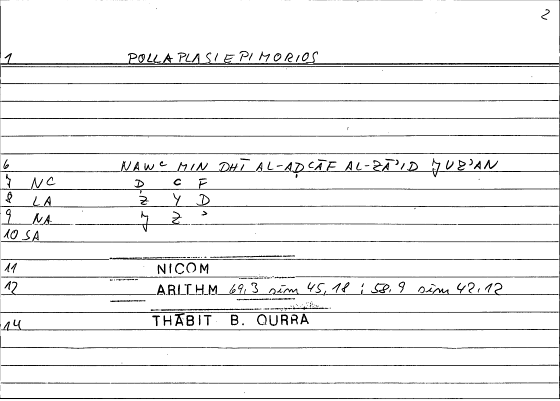 2
1 POLLAPLASIEPIMORIOS
6 NAWᶜ MIN DHĪ AL-AḌᶜĀF AL-ZĀʾID ǦUZʾAN
7 NC Ḍ ᶜ F
8 LA Z Y D
9 NA Ǧ Z ʾ
10 SA
11 NICOM
12 ARITHM 69,3 sim 45,18 ; 58,9 sim 42,12
14 THĀBIT B. QURRA